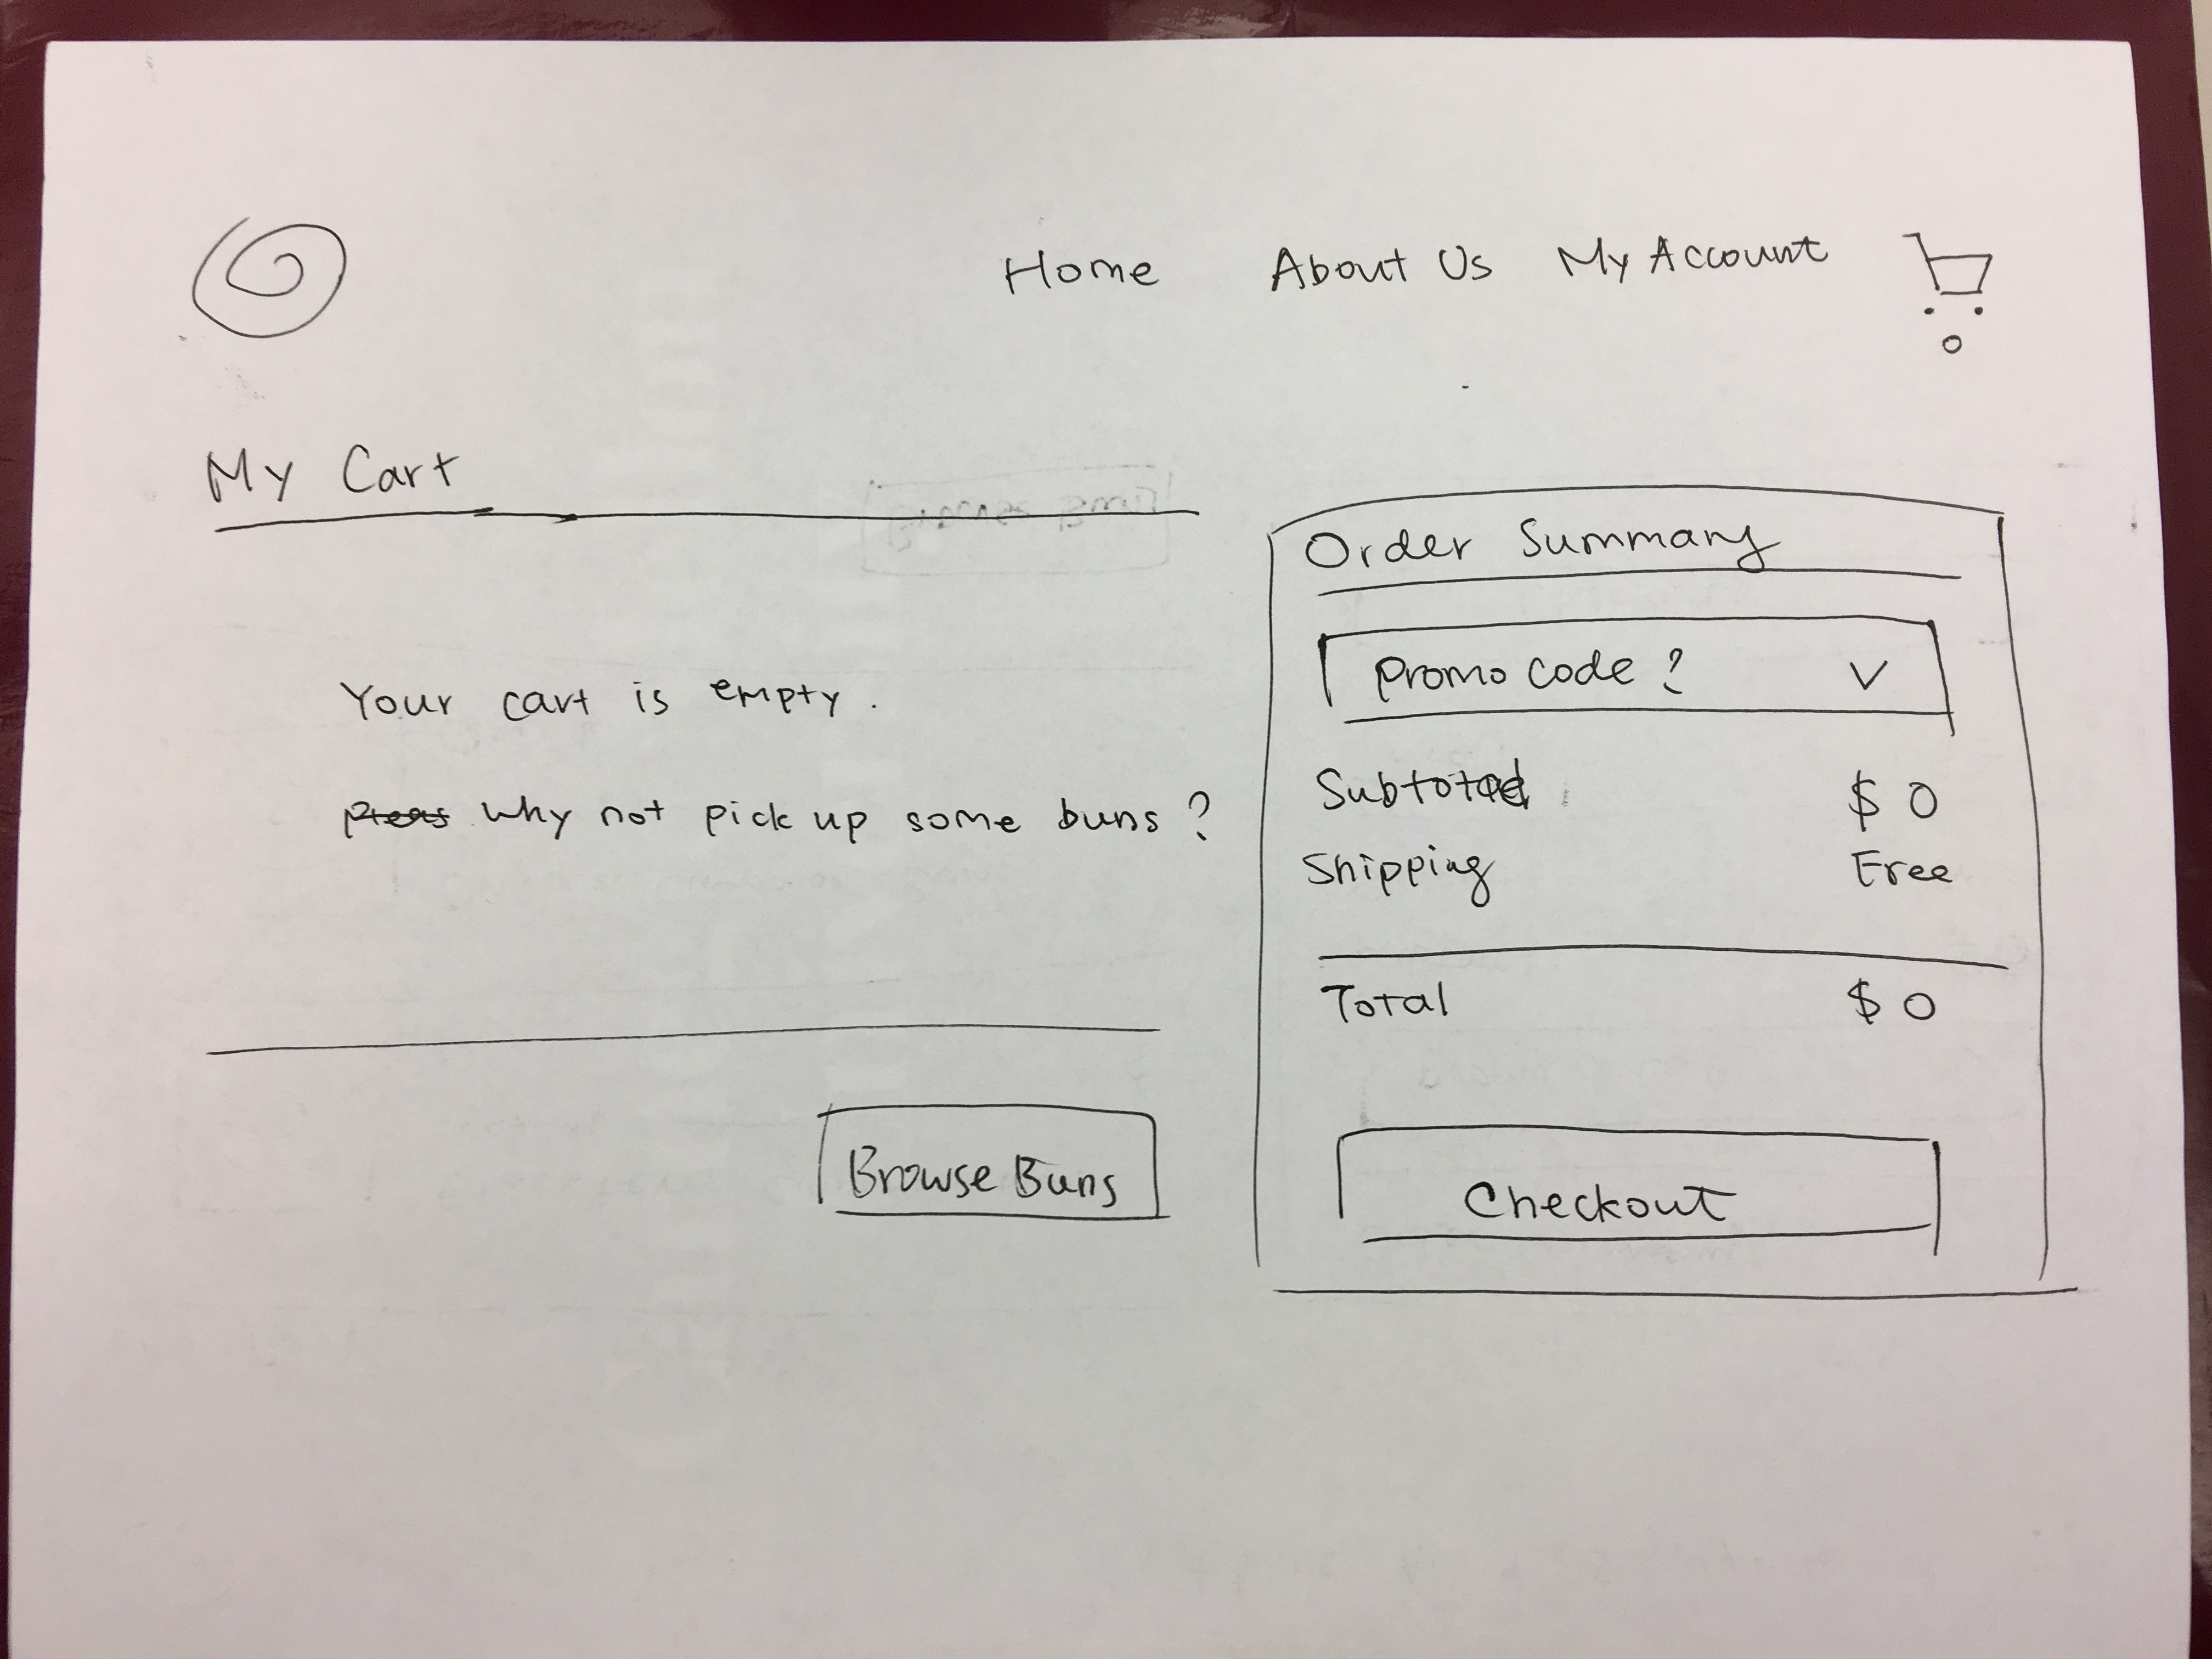 Home About Us My Account
0
My Cart
Your cart is empty.
why not pick up some buns?
Browse Buns
Order Summary
Promo code? v
Subtotal $0
Shipping Free
Total $0
Checkout